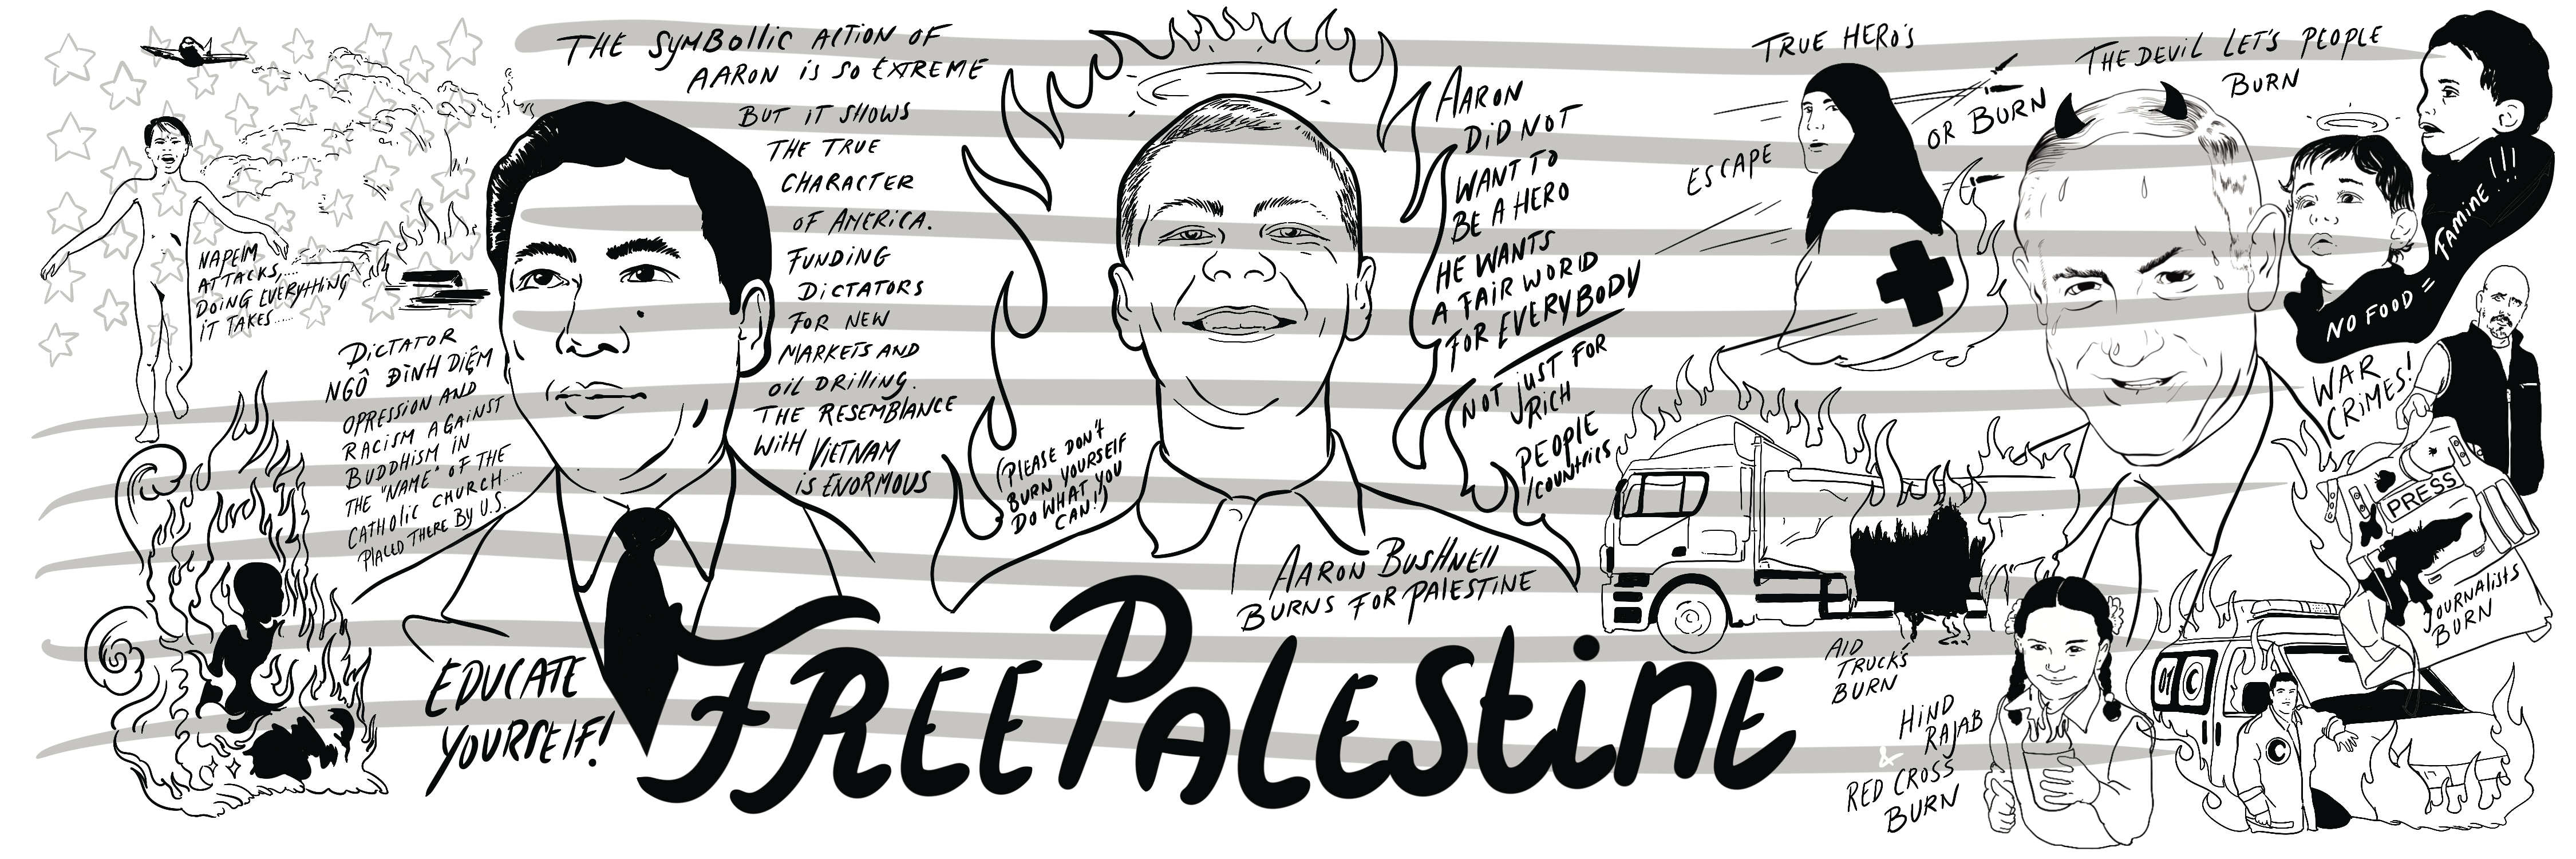 THE SYMBOLLIC ACTION OF
AARON IS SO EXTREME
BUT IT SHOWS
THE TRUE
CHARACTER
OF AMERICA.
FUNDING
DICTATORS
FOR NEW
MARKETS AND
OIL DRILLING.
THE RESEMBLANCE
WITH VIETNAM
IS ENORMOUS
NAPELM
ATTACKS,...
DOING EVERYHTING
IT TAKES.....
DICTATOR
NGÔ ĐÌNH DIỆM
OPRESSION AND
RACISM AGAINST
BUDDHISM IN
THE "NAME" OF THE
CATHOLIC CHURCH....
PLACED THERE BY U.S.
EDUCATE
YOURSELF!
(PLEASE DON'T
BURN YOURSELF
DO WHAT YOU
CAN!)
AARON
DID NOT
WANT TO
BE A HERO
HE WANTS
A FAIR WORLD
FOR EVERYBODY
NOT JUST FOR
RICH
PEOPLE
/COUNTRIES
AARON BUSHNELL
BURNS FOR PALESTINE
FREE PALESTINE
TRUE HERO'S
ESCAPE
OR BURN
THE DEVIL LET'S PEOPLE
BURN
NO FOOD = FAMINE!!!
WAR
CRIMES!
PRESS
JOURNALISTS
BURN
AID
TRUCK'S
BURN
HIND
RAJAB
&
RED CROSS
BURN